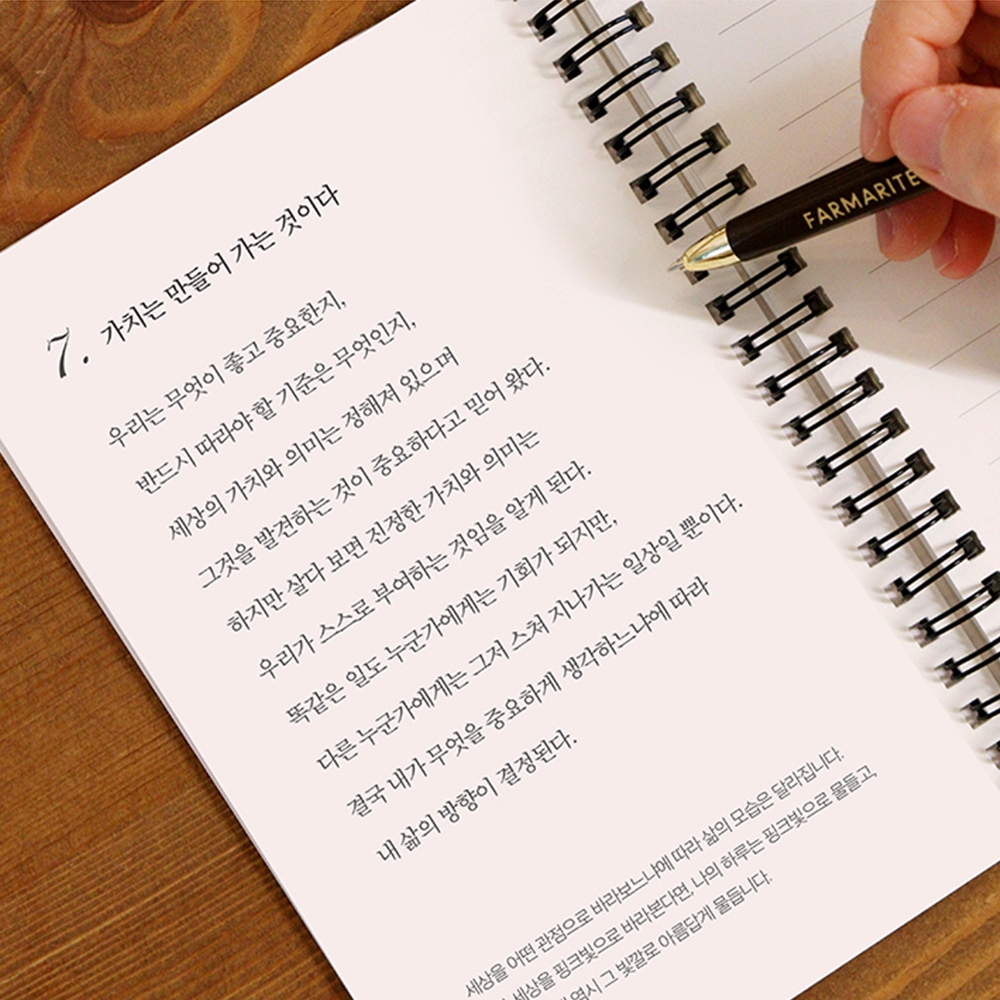 7. 가치는 만들어 가는 것이다
우리는 무엇이 좋고 중요한지,
반드시 따라야 할 기준은 무엇인지,
세상의 가치와 의미는 정해져 있으며
그것을 발견하는 것이 중요하다고 믿어 왔다.
하지만 살다 보면 진정한 가치와 의미는
우리가 스스로 부여하는 것임을 알게 된다.
똑같은 일도 누군가에게는 기회가 되지만,
다른 누군가에게는 그저 스쳐 지나가는 일상일 뿐이다.
결국 내가 무엇을 중요하게 생각하느냐에 따라
내 삶의 방향이 결정된다.
세상을 어떤 관점으로 바라보느냐에 따라 삶의 모습은 달라집니다.
세상을 핑크빛으로 바라본다면, 나의 하루는 핑크빛으로 물들고,
역시 그 빛깔로 아름답게 물듭니다.
FARMARITE